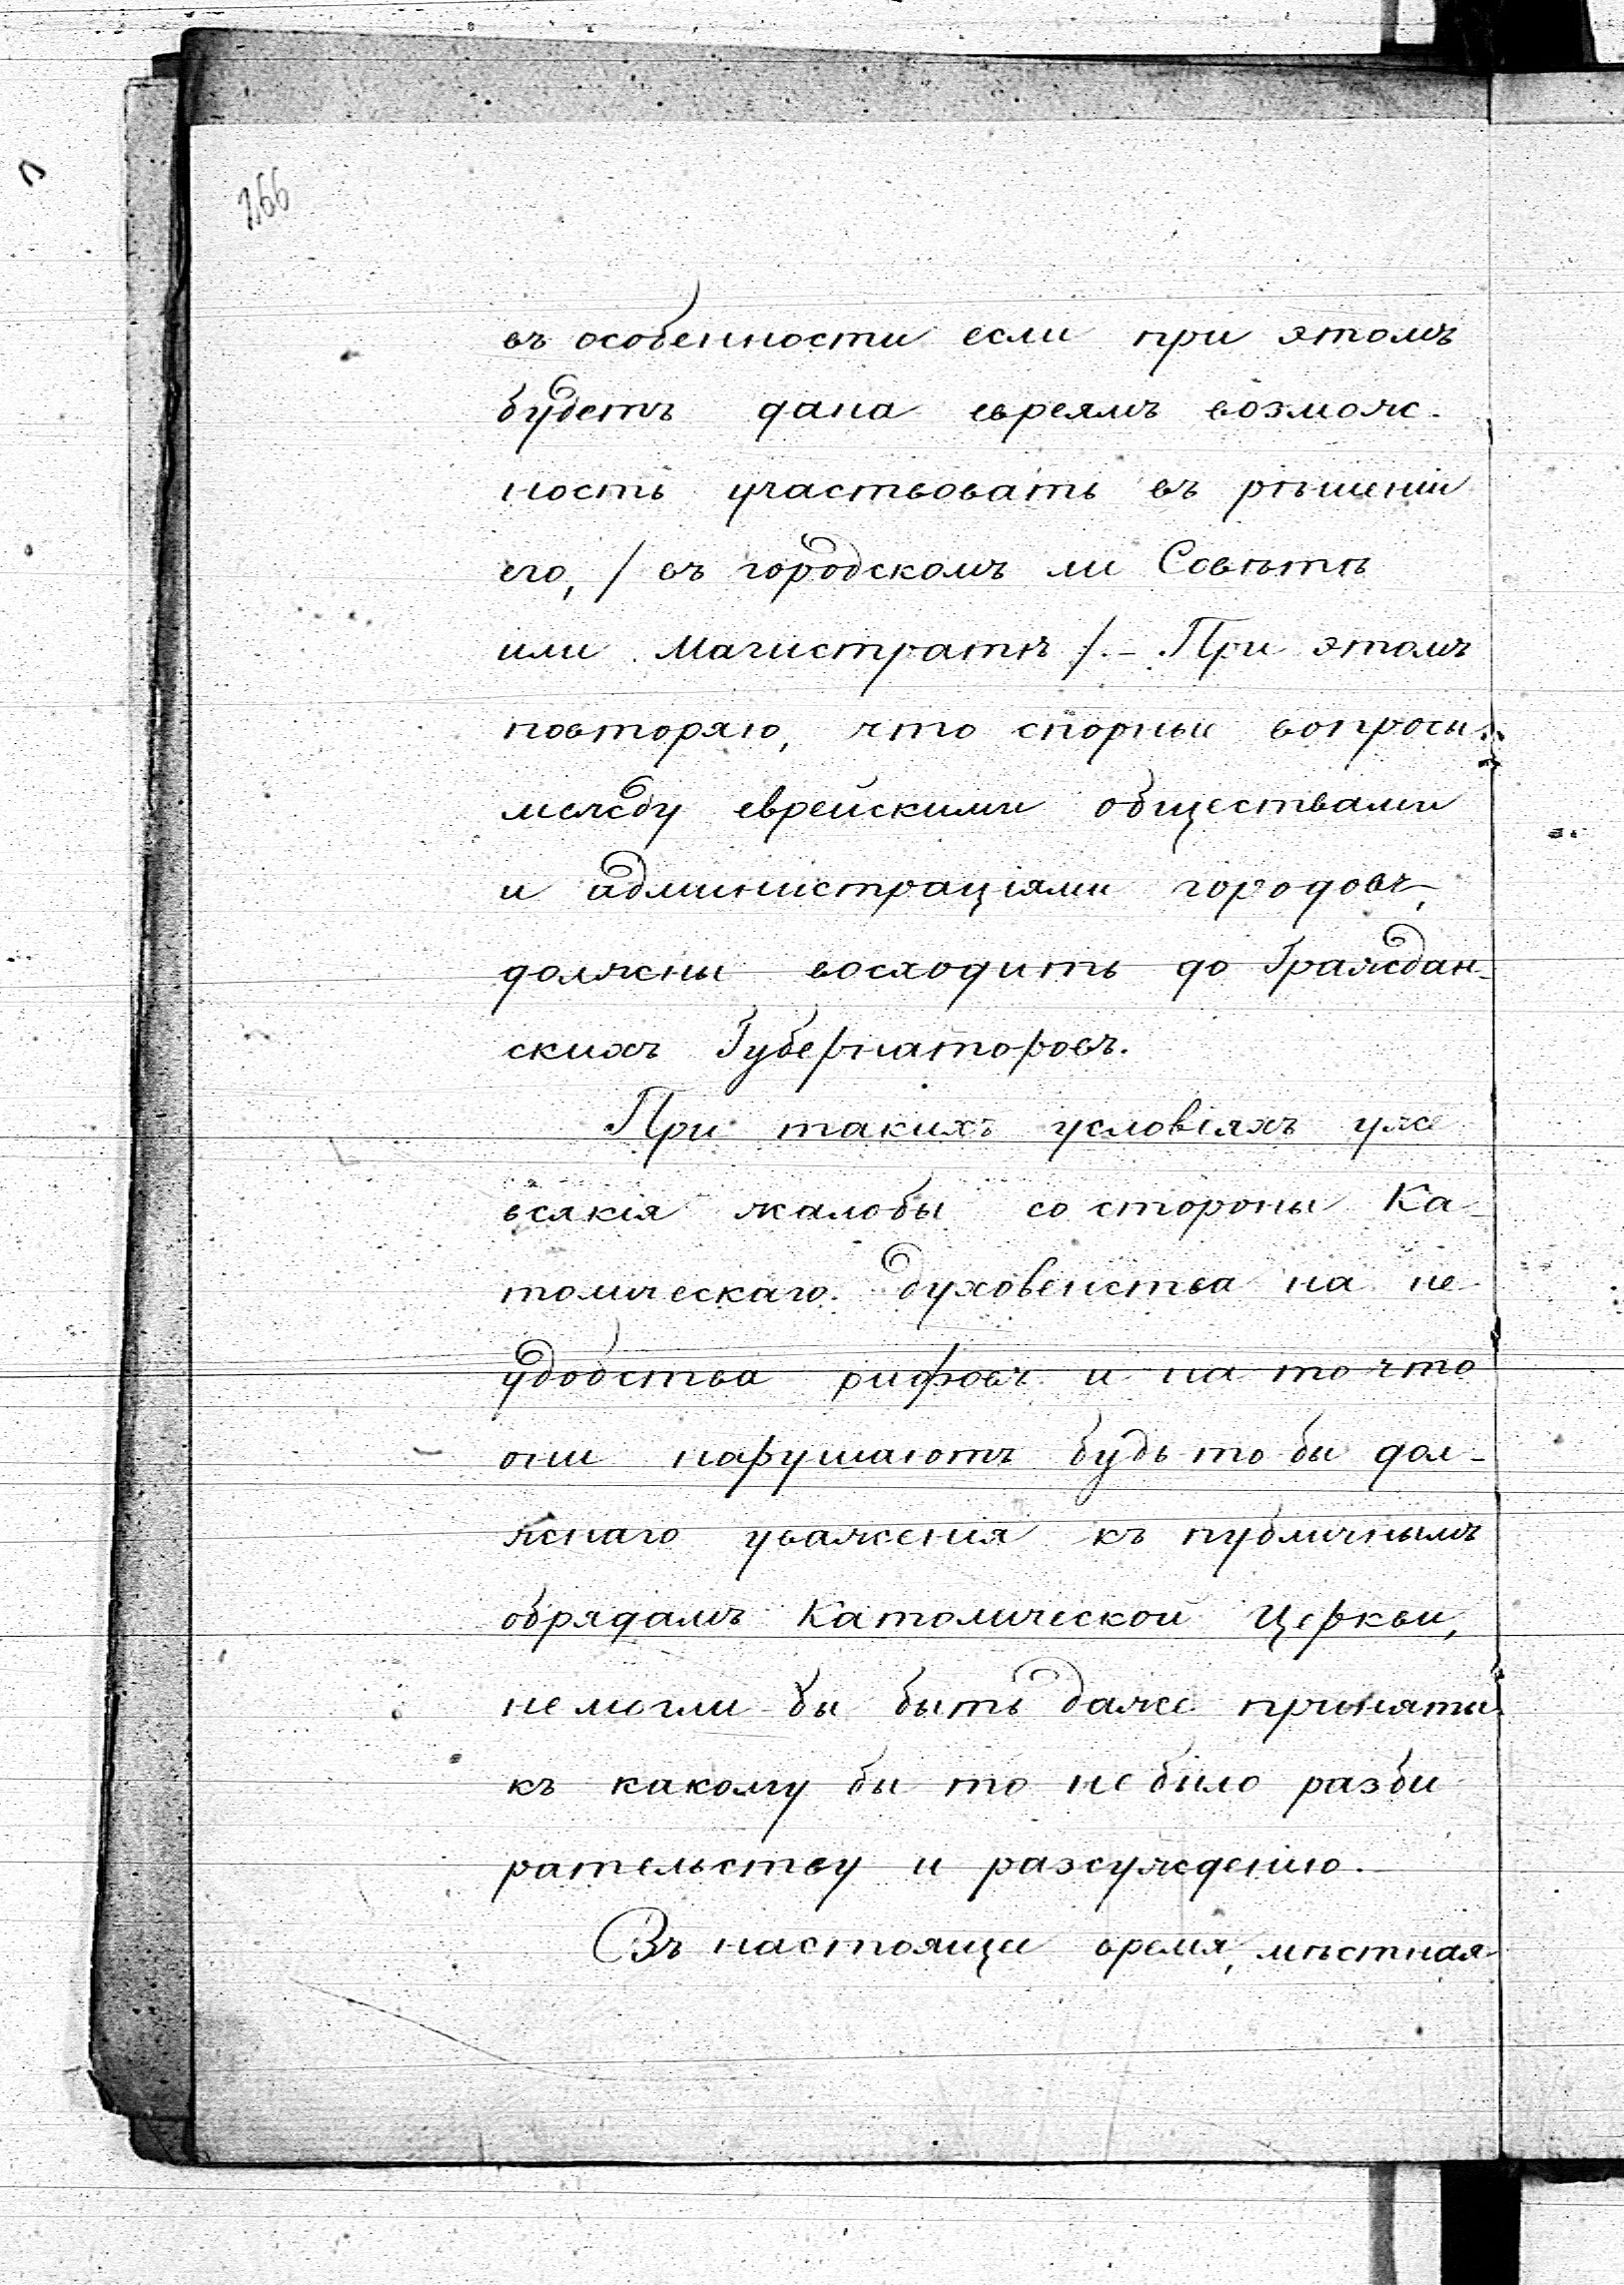 266
въ особенности если при этомъ
будетъ дана евреямъ возмож-
ность участвовать въ рѣшеніи
его, / въ городскомъ ли Совѣтѣ
или Магистратѣ /. – При этомъ
повторяю, что спорные вопросы
между еврейскими обществами
и администраціями городовъ,
должны восходить до Граждан-
скихъ Губернаторовъ.
При такихъ условіяхъ уже
всякія жалобы со стороны Ка-
толическаго духовенства на не-
удобства рифовъ и на то что
они нарушаютъ будь то бы дол-
жнаго уваженія къ публичнымъ
обрядамъ Католической Церкви,
не могли бы быть даже приняты
къ какому бы то не было разби
рательству и разсужденію. –
Въ настоящее время, мѣстная